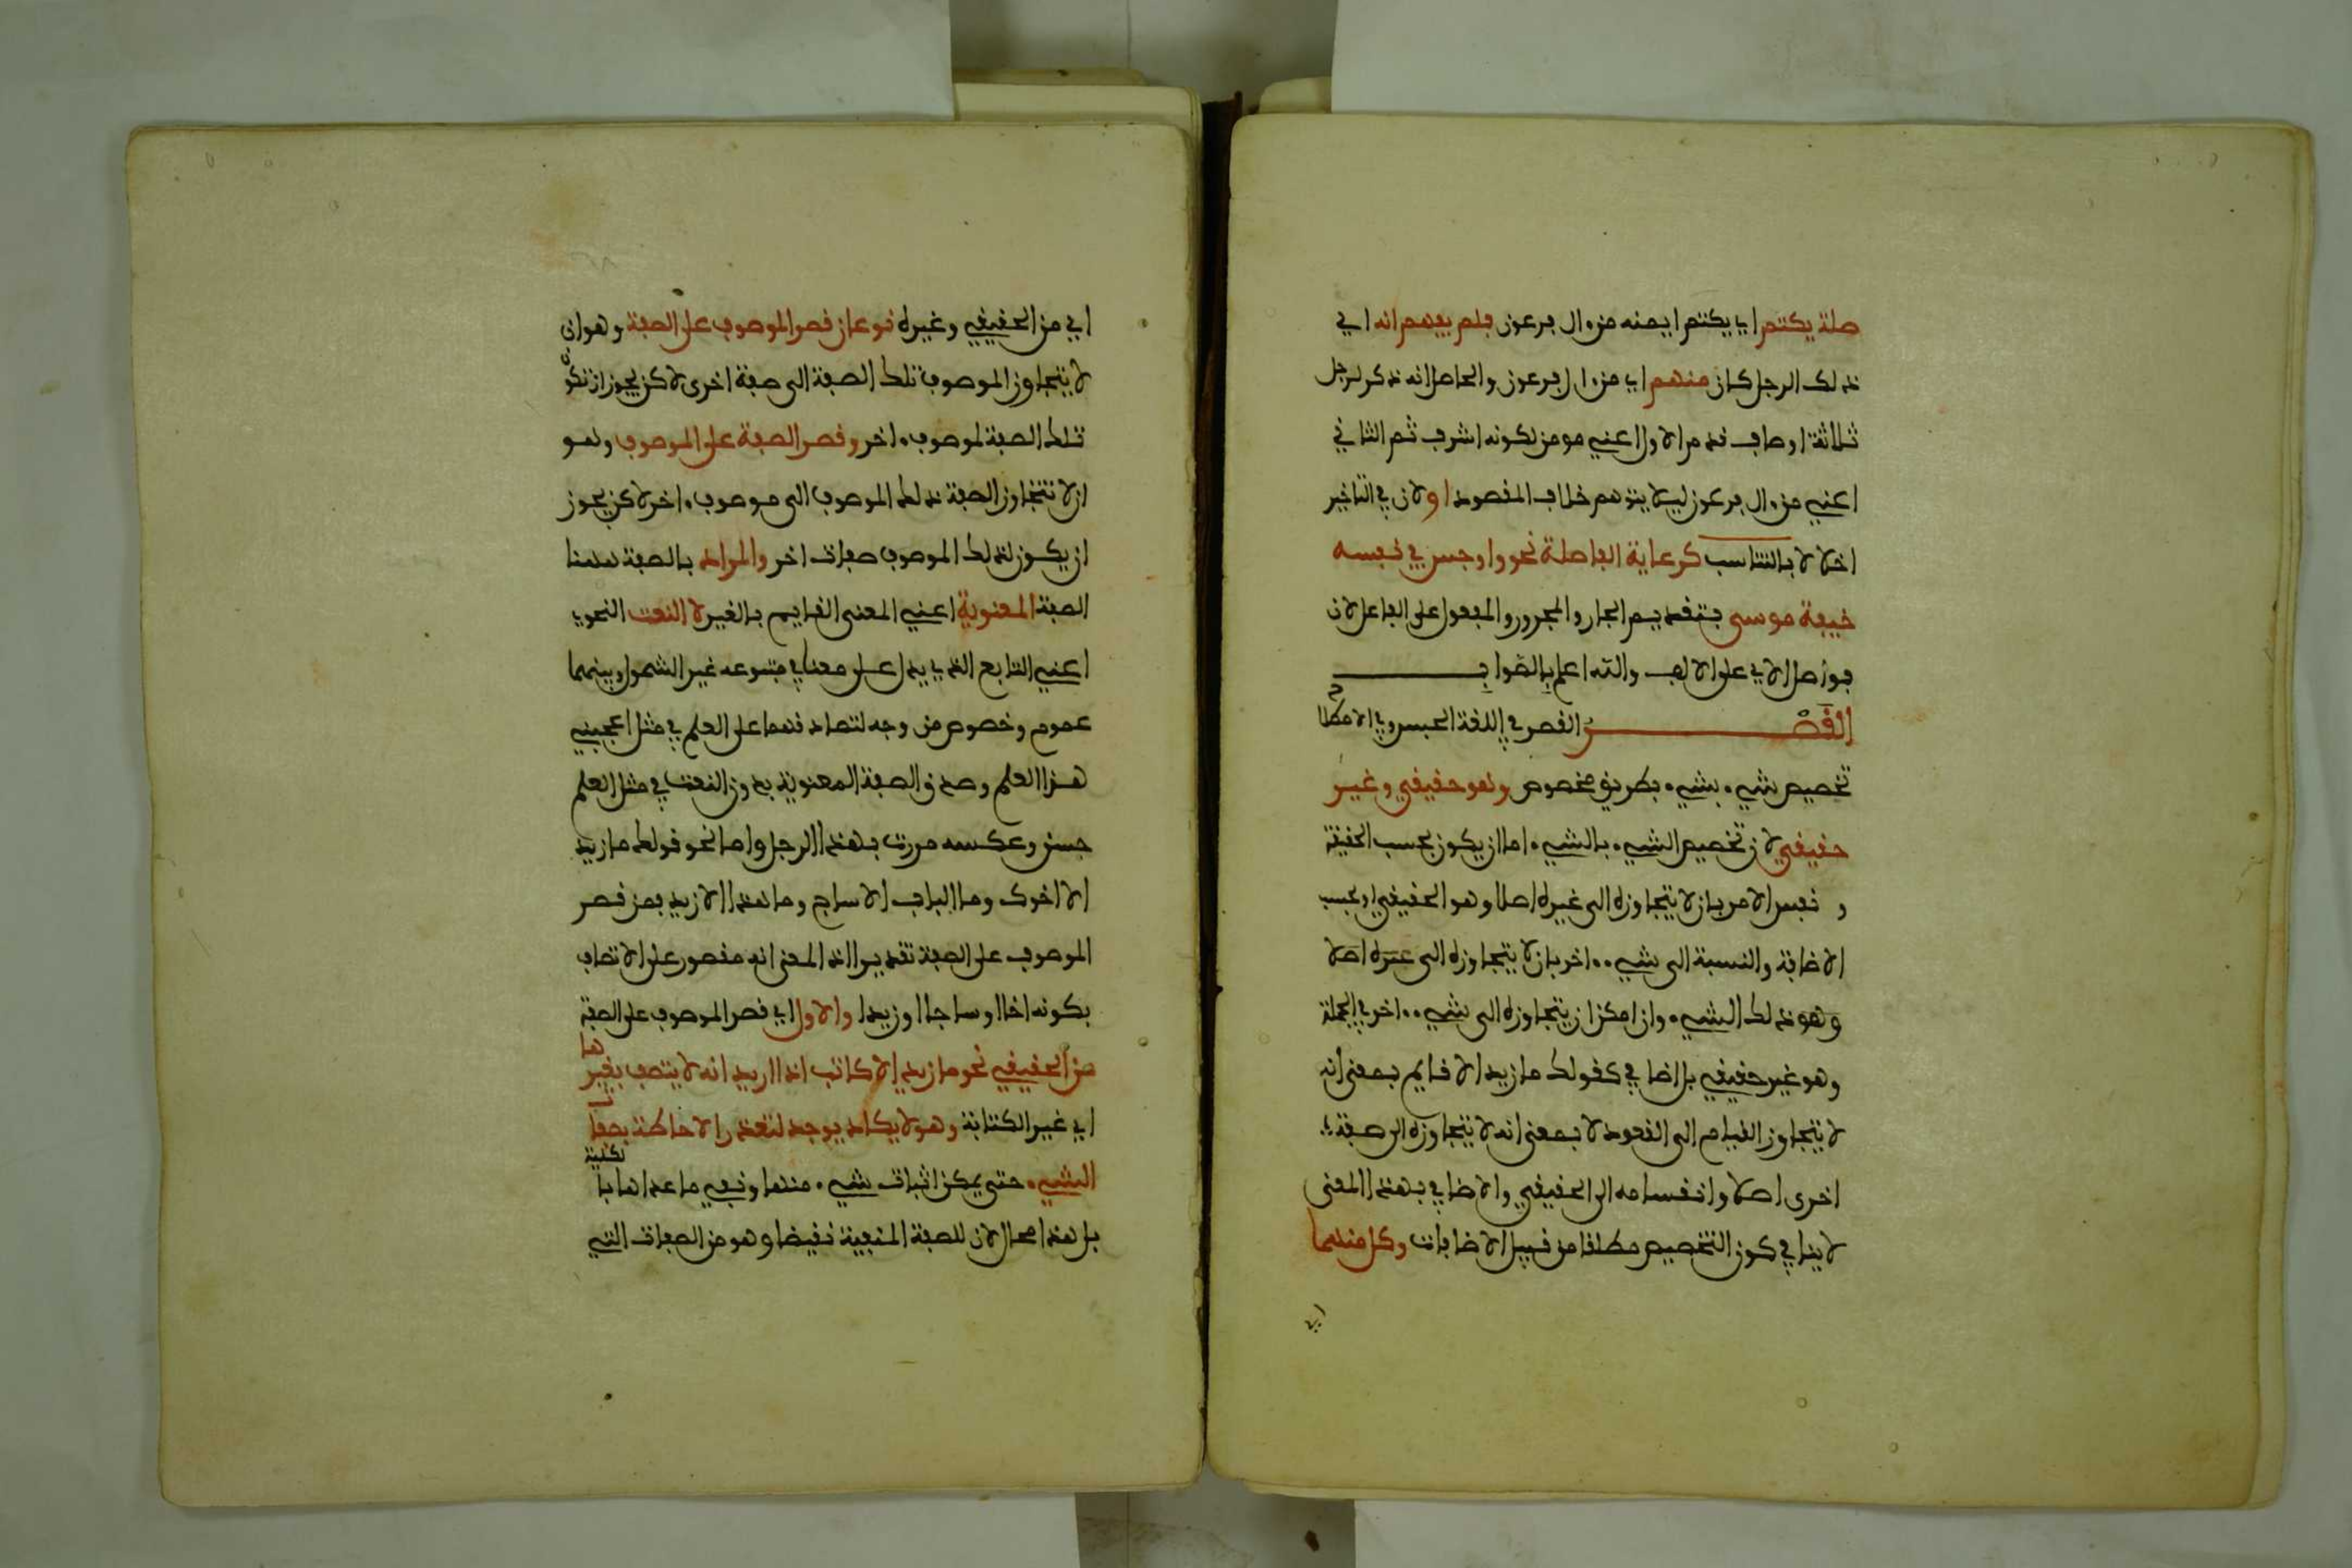 صلة يكتم اي يكتم ايمنه من ءال فرعون فلم يفهم انه اي
ذلك الرجل كان منهم اي من ءال فرعون والحاصل انه ذكر لرجل
ثلاثة اوصاف قدم الاول اعني مومن لكونه اشرف ثم الثاني
اعني من ءال فرعون ليلا يتوهم خلاف المقصود او لان في التاخير
اخلالا بالتناسب كرعاية الفاصلة نحو واوجس في نفسه
خيفة موسى بتقديم الجار والمجرور والمفعول على الفاعل لان
فواصل الاي على الالف والله اعلم بالصواب
القصر القصر في اللغة الحبس وفي الاصطلاح
تخصيص شيء بشيء بطريق مخصوص وهو حقيقي وغير
حقيقي لان تخصيص الشيء بالشيء اما ان يكون بحسب الحقيقة
و نفس الامر بان لا يتجاوزه الى غيره اصلا وهو الحقيقي او بحسب
الاضافة والنسبة الى شيء ءاخر بان لا يتجاوزه الى غيره اصلا
وهو ذلك الشيء وان امكن ان يتجاوزه الى شيء ءاخر في الجملة
وهو غير حقيقي بل اضافي كقولك ما زيد الا قايم بمعنى انه
لا يتجاوز القيام الى القعود لا بمعنى انه لا يتجاوزه الى صفة
اخرى اصلا وانقسامه الى الحقيقي والاضافي بهذا المعنى
لا ينافي كون التخصيص مطلقا من قبيل الاضافات وكل منهما
اي
اي من الحقيقي وغيره نوعان قصر الموصوف على الصفة وهو ان
لا يتجاوز الموصوف تلك الصفة الى صفة اخرى لاكن يجوز ان تكون
تلك الصفة لموصوف ءاخر وقصر الصفة على الموصوف وهو
ان لا تتجاوز الصفة ذلك الموصوف الى موصوف ءاخر لاكن يجوز
ان يكون لذلك الموصوف صفات اخر والمراد بالصفة ههنا
الصفة المعنوية اعني المعنى القايم بالغير لا النعت النحوي
اعني التابع الذي يدل على معنا في متبوعه غير الشمول وبينهما
عموم وخصوص من وجه لتصادقهما على العلم في مثل اعجبني
هذا العلم وصدق الصفة المعنوية بدون النعت في مثل العلم
حسن وعكسه مررت بهذا الرجل واما نحو قولك ما زيد
الا اخوك وما الباب الا ساج وما هذا الا زيد فمن قصر
الموصوف على الصفة تقديرا اذ المعنى انه مقصور على الاتصاف
بكونه اخا او ساجا او زيدا والاول اي قصر الموصوف على الصفة
من الحقيقي نحو ما زيد الا كاتب اذا اريد انه لا يتصف بغيرها
اي غير الكتابة وهو لا يكاد يوجد لتعذر الاحاطة بصفات
الشيء حتى يمكن اثبات شيء منها ونفي ما عداها بالكلية
بل هذا محال لان للصفة المنفية نقيضا وهو من الصفات التي